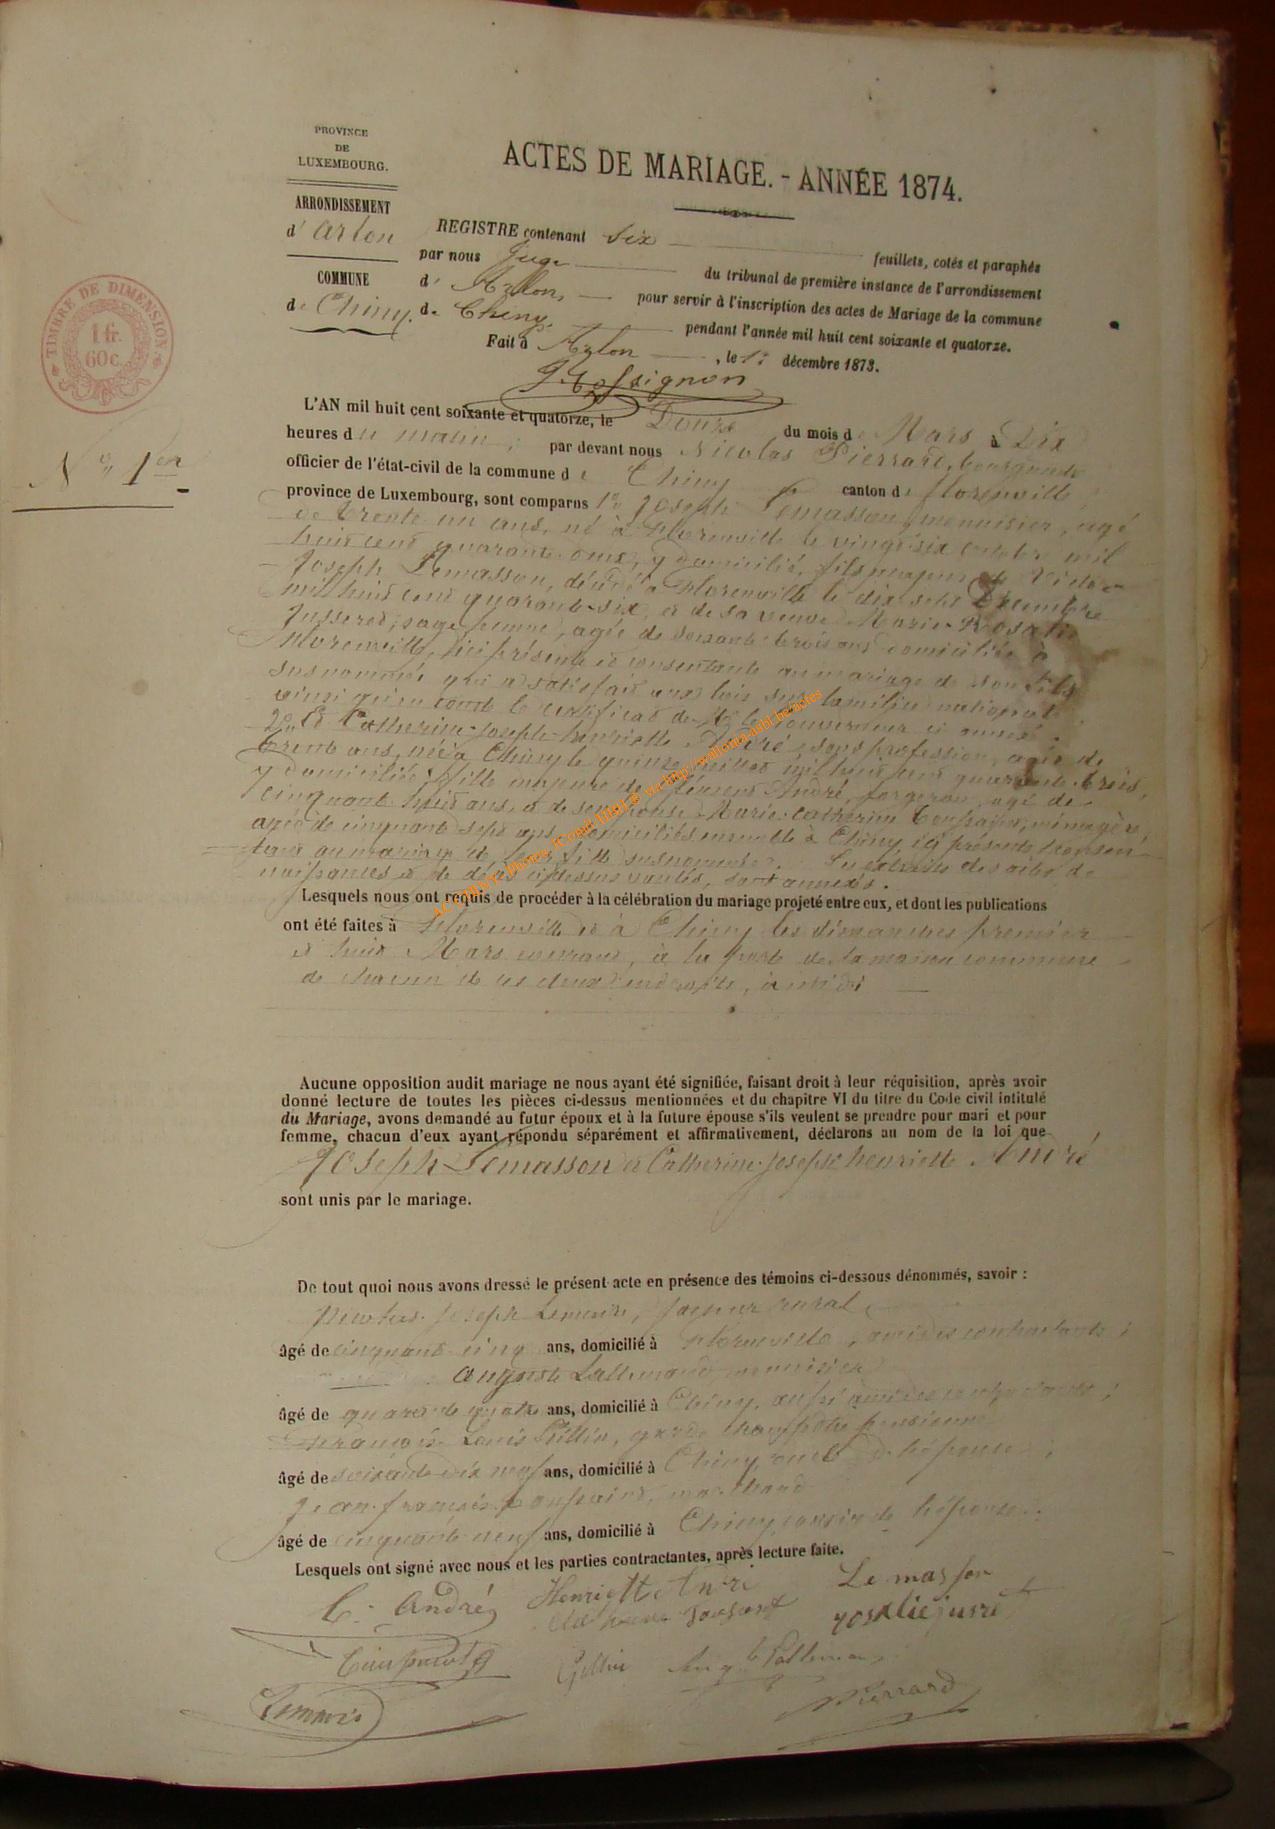 PROVINCE
DE
LUXEMBOURG.
ARRONDISSEMENT
d' Arlon
COMMUNE
de Chiny.
TIMBRE DE DIMENSION
1 fr.
60c.
N° 1er
ACTES DE MARIAGE. - ANNÉE 1874.
REGISTRE contenant Six feuillets, cotés et paraphés
par nous Juge du tribunal de première instance de l'arrondissement
d' Arlon, pour servir à l'inscription des actes de Mariage de la commune
de Chiny. pendant l'année mil huit cent soixante et quatorze.
Fait à Arlon, le décembre 1873.
L'AN mil huit cent soixante et quatorze, le Douze du mois de Mars à Dix
heures du matin, par devant nous Nicolas Pierrard, bourgmestre
officier de l'état-civil de la commune de Chiny canton de florenville
province de Luxembourg, sont comparus 1° Joseph Lemasson, menuisier, agé
de trente un ans, né à florenville le vingt six octobre mil
huit cent quarante deux, y domicilié, fils majeur de Victor
Joseph Lemasson, décédé à florenville le dix sept Décembre
mil huit cent quarante-six, et de sa veuve Marie-Rosalie
Jusseret, sage femme, agée de soixante trois ans domiciliée à
florenville, ici présente et consentante au mariage de son fils
susnommé qui a satisfait aux lois sur la milice nationale
ainsi qu'en conste le certificat de Mr le Gouverneur ci annexé.
2° Et Catherine-Joseph-henriette André, sans profession, agée de
trente ans, née à Chiny le quinze mil huit cent quarante trois,
y domiciliée, fille majeure de Laurent André, forgeron, agé de
cinquante huit ans, et de son épouse Marie-Catherine Toussaint, ménagère,
agée de cinquante sept ans, domiciliés ensemble à Chiny, ici présents & consen-
tans au mariage de leur fille susnommée. Les extraits des actes de
naissances et de décès ci dessus vantés, sont annexés.
Lesquels nous ont requis de procéder à la célébration du mariage projeté entre eux, et dont les publications
ont été faites à florenville et à Chiny les dimanches premier
et huit Mars courant, à la porte de la maison commune
de chacun de ces deux endroits, à midi
Aucune opposition audit mariage ne nous ayant été signifiée, faisant droit à leur réquisition, après avoir
donné lecture de toutes les pièces ci-dessus mentionnées et du chapitre VI du titre du Code civil intitulé
du Mariage, avons demandé au futur époux et à la future épouse s'ils veulent se prendre pour mari et pour
femme, chacun d'eux ayant répondu séparément et affirmativement, déclarons au nom de la loi que
Joseph Lemasson et Catherine-Joseph henriette André
sont unis par le mariage.
De tout quoi nous avons dressé le présent acte en présence des témoins ci-dessous dénommés, savoir :
Nicolas Joseph Lemaire, facteur rural
âgé de cinquante cinq ans, domicilié à florenville, ami des contractants ;
Auguste Lallemand menuisier
âgé de quarante quatre ans, domicilié à Chiny, aussi ami des contractants ;
François Louis Gillin, garde champêtre pensionné
âgé de soixante dix neuf ans, domicilié à Chiny, oncle de l'épouse ;
Jean-françois Toussaint, marchand
âgé de cinquante neuf ans, domicilié à Chiny cousin de l'épouse.
Lesquels ont signé avec nous et les parties contractantes, après lecture faite.
L. André Henriette André Lemasson
Catherine Toussaint rosalie jusret
Toussaint Gillin Aug. Lallemand
Lemaire NPierrard